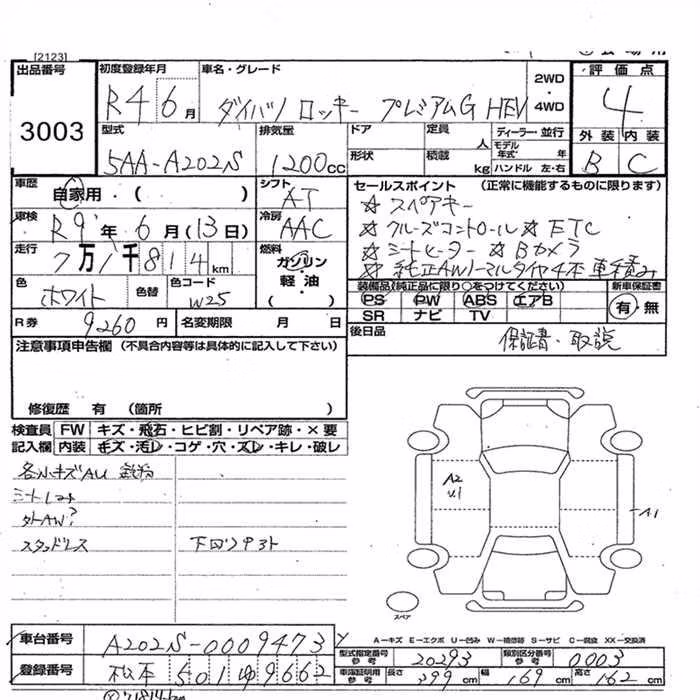 [2123]
出品番号 初度登録年月 車名・グレード 2WD・4WD 評価点
3003 R4 6月 ダイハツ ロッキー プレミアムG HEV 4
型式 排気量 ドア 定員 人 ディーラー・並行 外装 内装
5AA-A202S 1200cc 形状 積載 kg モデル年式 年 ハンドル 左・右 B C
車歴 自家用・( ) シフト AT セールスポイント (正常に機能するものに限ります)
☆スペアキー
車検 R9年 6月(13日) 冷房 AAC ☆クルーズコントロール ☆ETC
走行 7万1千814km 燃料 ガソリン・軽油・( ) ☆シートヒーター ☆Bカメラ
☆純正AWノーマルタイヤ4本車積み
色 ホワイト 色替 色コード W25 装備品(純正品に限り○をつけてください) 新車保証書
PS PW ABS エアB 有・無
R券 9260円 名変期限 月 日 SR ナビ TV
注意事項申告欄 (不具合内容等は具体的に記入して下さい) 後日品 保証書・取説
修復歴 有 (箇所 )
検査員記入欄 FW キズ・飛石・ヒビ割・リペア跡・×要
内装 キズ・汚レ・コゲ・穴・スレ・キレ・破レ
各小キズAU 鉄粉
シートレスト
外AW?
スタッドレス 下回りサビ
A2
U1
A1
スペア
A-キズ E-エクボ U-凹み W-補修跡 S-サビ C-腐食 XX-交換済
車台番号 A202S-0009473 型式指定番号 参考 20293 類別区分番号 参考 0003
登録番号 松本 501 ゆ 9662 車庫証明用 参考 長さ 399cm 幅 169cm 高さ 162cm